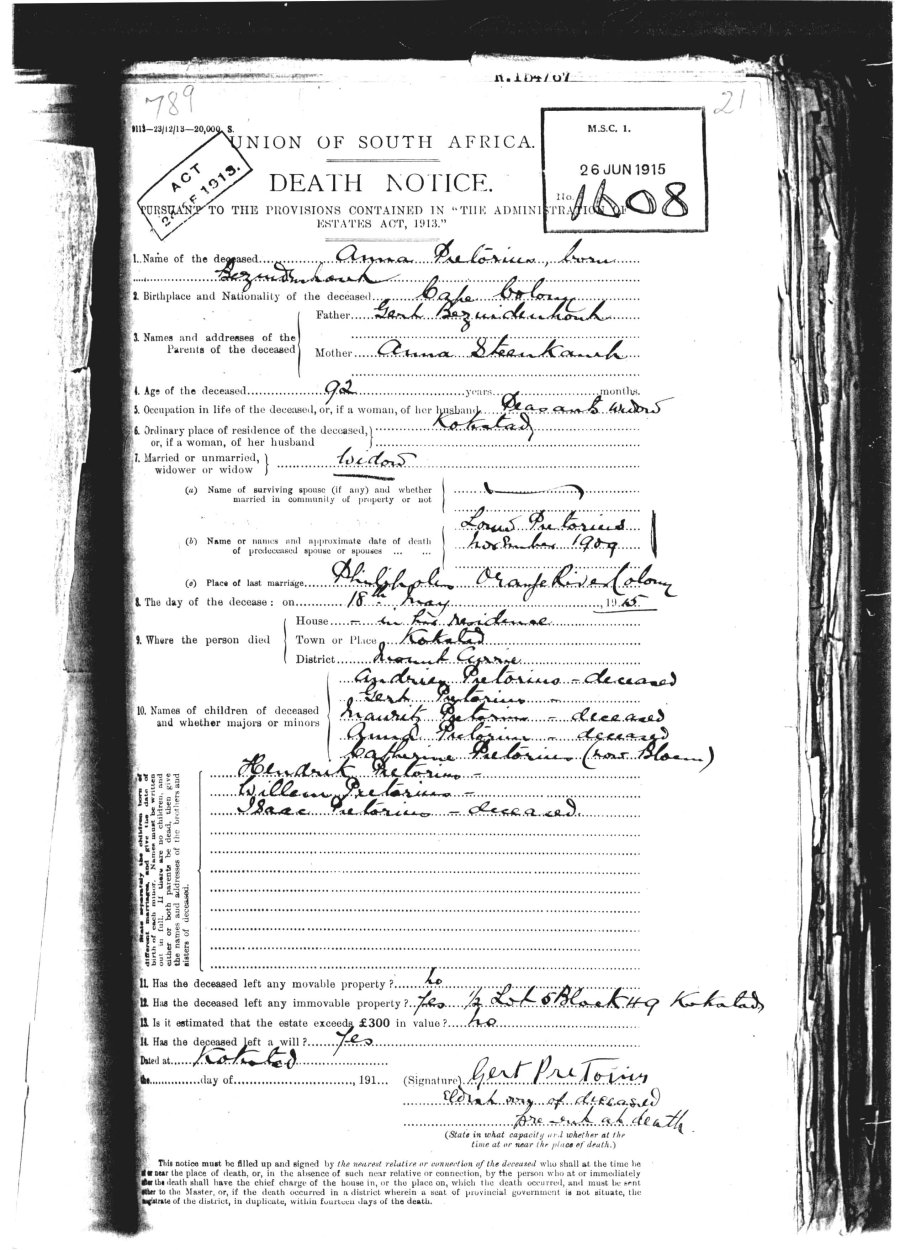 789
21
9113—23/12/13—20,000. S.
UNION OF SOUTH AFRICA.
M.S.C. 1.
26 JUN 1915
No. 1608
ACT 1913.
DEATH NOTICE.
PURSUANT TO THE PROVISIONS CONTAINED IN "THE ADMINISTRATION OF
ESTATES ACT, 1913."
1. Name of the deceased Anna Pretorius, born
Bezuidenhout
2. Birthplace and Nationality of the deceased Cape Colony
3. Names and addresses of the Parents of the deceased
Father Gert Bezuidenhout
Mother Anna Steenkamp
4. Age of the deceased 92 years months.
5. Occupation in life of the deceased, or, if a woman, of her husband Peasant's widow
6. Ordinary place of residence of the deceased, or, if a woman, of her husband Kokstad
7. Married or unmarried, widower or widow Widow
(a) Name of surviving spouse (if any) and whether married in community of property or not
(b) Name or names and approximate date of death of predeceased spouse or spouses ... ...
Pretorius
November 1909
(c) Place of last marriage Philippolis Orange River Colony
8. The day of the decease: on 18th May, 1915
9. Where the person died
House - in residence
Town or Place Kokstad
District Mount Currie
10. Names of children of deceased and whether majors or minors
Andries Pretorius - deceased
Gert Pretorius -
Maurits Pretorius - deceased
Anna Pretorius - deceased
Catherine Pretorius (now Bloem)
Hendrik Pretorius -
Willem Pretorius -
Isaac Pretorius - deceased.
State separately the children born of
different marriages, and give the date of
birth of each minor. Names must be written
out in full. If there are no children, and
either or both parents be dead, then give
the names and addresses of the brothers and
sisters of deceased.
11. Has the deceased left any movable property? no
12. Has the deceased left any immovable property? Yes ½ Lot 5 Block 49 Kokstad
13. Is it estimated that the estate exceeds £300 in value? no
14. Has the deceased left a will? Yes
Dated at Kokstad
the day of , 191 (Signature) Gert Pretorius
Eldest son of deceased
present at death
(State in what capacity and whether at the
time at or near the place of death.)
This notice must be filled up and signed by the nearest relative or connection of the deceased who shall at the time be
at or near the place of death, or, in the absence of such near relative or connection, by the person who at or immediately
after the death shall have the chief charge of the house in, or the place on, which the death occurred, and must be sent
either to the Master, or, if the death occurred in a district wherein a seat of provincial government is not situate, the
magistrate of the district, in duplicate, within fourteen days of the death.